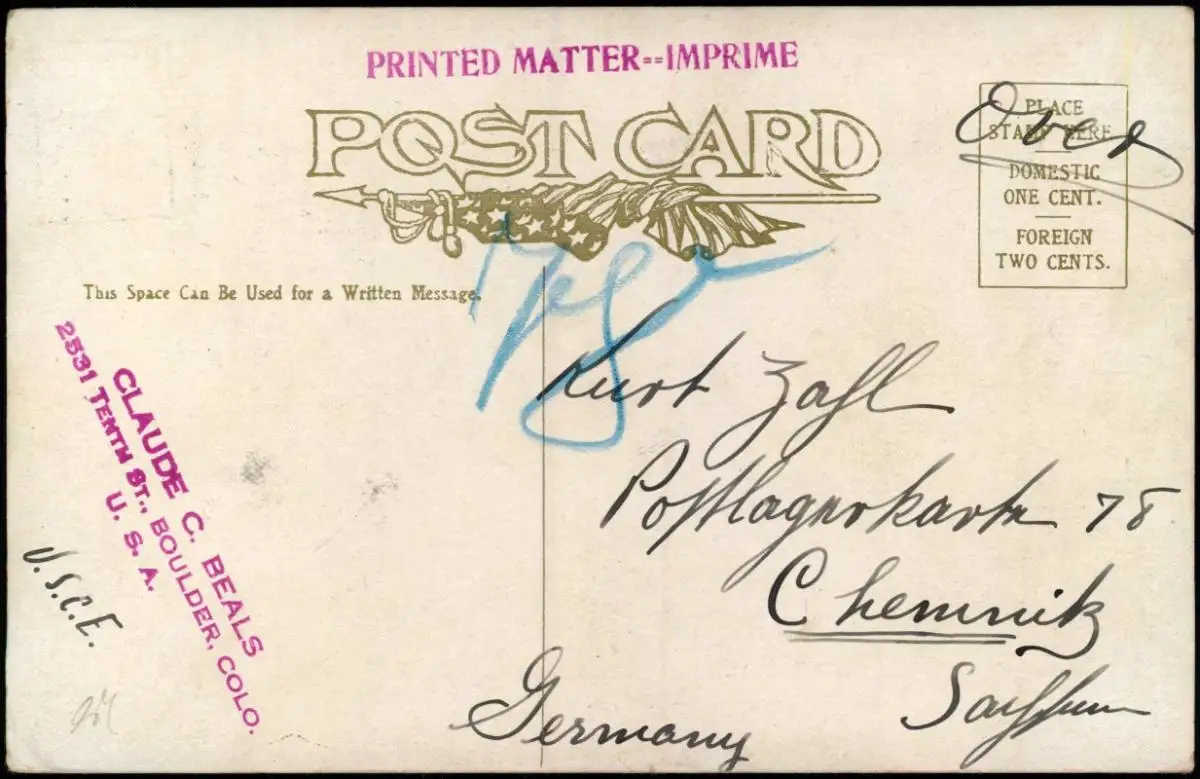 PRINTED MATTER==IMPRIME
POST CARD
Over
PLACE
STAMP HERE
DOMESTIC
ONE CENT.
FOREIGN
TWO CENTS.
This Space Can Be Used for a Written Message.
CLAUDE C. BEALS
2531 TENTH ST., BOULDER, COLO.
U. S. A.
U.S.C.E.
Kurt Zahl
Postlagerkarte 78
Chemnitz
Sachsen
Germany